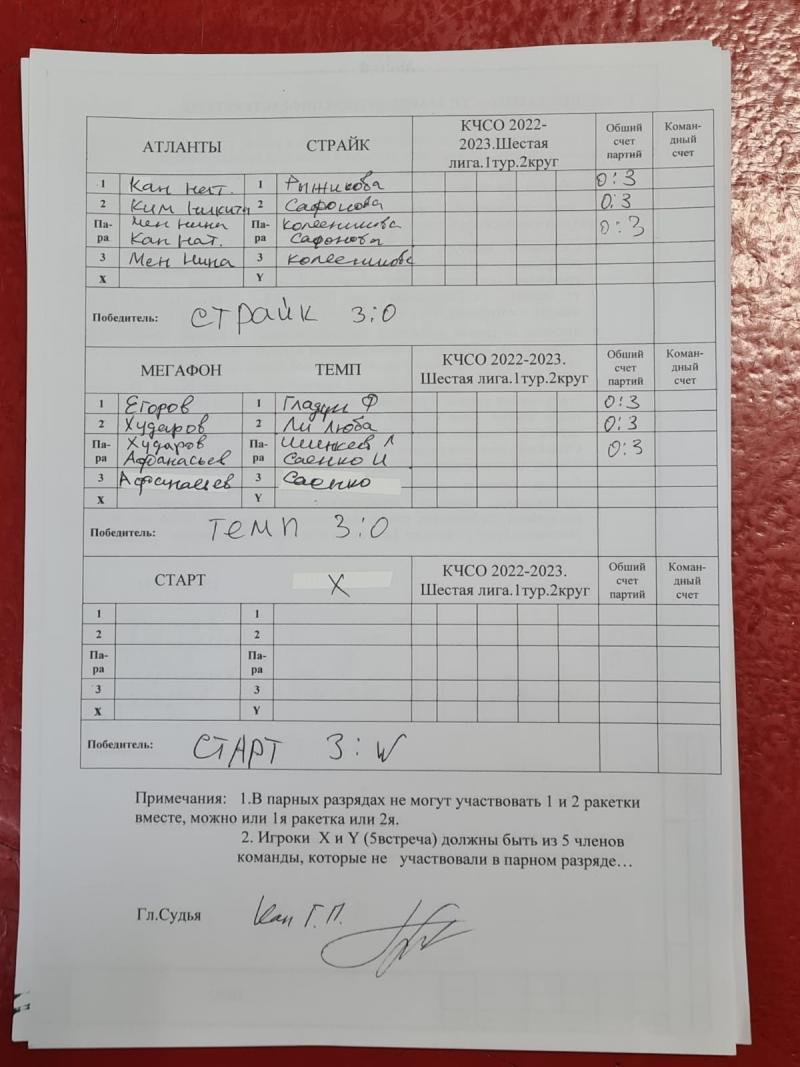 АТЛАНТЫ СТРАЙК КЧСО 2022- Общий Коман-
2023.Шестая счет дный
лига.1тур.2круг партий счет
1 Кан Нат. 1 Рыжикова 0:3
2 Ким Никита 2 Сафонова 0:3
Па- Мен Нина Па- Колесникова 0:3
ра Кан Нат. ра Сафонова
3 Мен Нина 3 Колесникова
X Y
Победитель: СТРАЙК 3:0
МЕГАФОН ТЕМП КЧСО 2022-2023. Общий Коман-
Шестая лига.1тур.2круг счет дный
партий счет
1 Егоров 1 Гладун Ф 0:3
2 Хударов 2 Ли Люба 0:3
Па- Хударов Па- Л 0:3
ра Афанасьев ра Саенко И
3 Афанасьев 3 Саенко
X Y
Победитель: ТЕМП 3:0
СТАРТ X КЧСО 2022-2023. Общий Коман-
Шестая лига.1тур.2круг счет дный
партий счет
1 1
2 2
Па- Па-
ра ра
3 3
X Y
Победитель: СТАРТ 3:W
Примечания: 1.В парных разрядах не могут участвовать 1 и 2 ракетки
вместе, можно или 1я ракетка или 2я.
2. Игроки X и Y (5встреча) должны быть из 5 членов
команды, которые не участвовали в парном разряде…
Гл.Судья Кан Г.П.